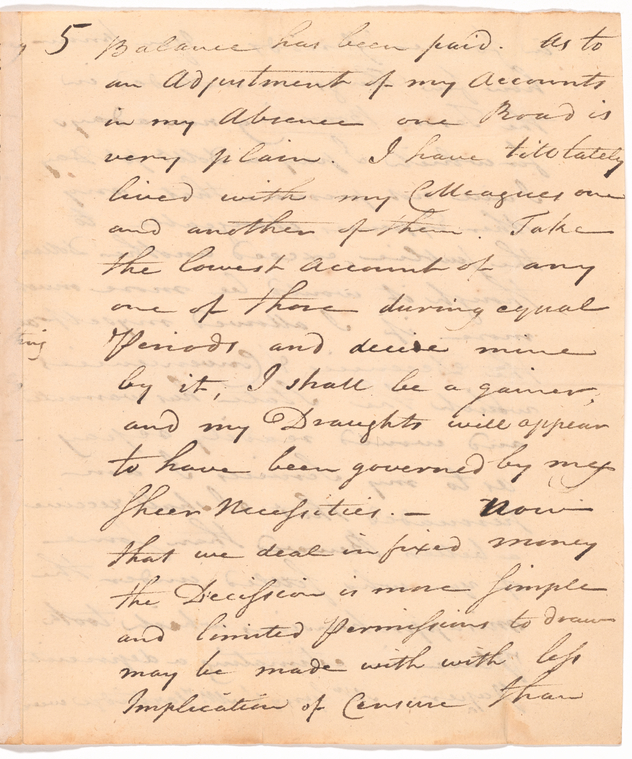 5 Balance has been paid. As to
an Adjustment of my Accounts
in my Absence one Road is
very plain. I have till lately
lived with my Colleagues one
and another of them. Take
the lowest Account of any
one of those during equal
Periods and decide mine
by it, I shall be a gainer,
and my Draughts will appear
to have been governed by my
Sheer Necessities. — Now
that we deal in fixed money
the Decission is more simple
and limited Permissions to draw
may be made with with less
Implication of Censure than